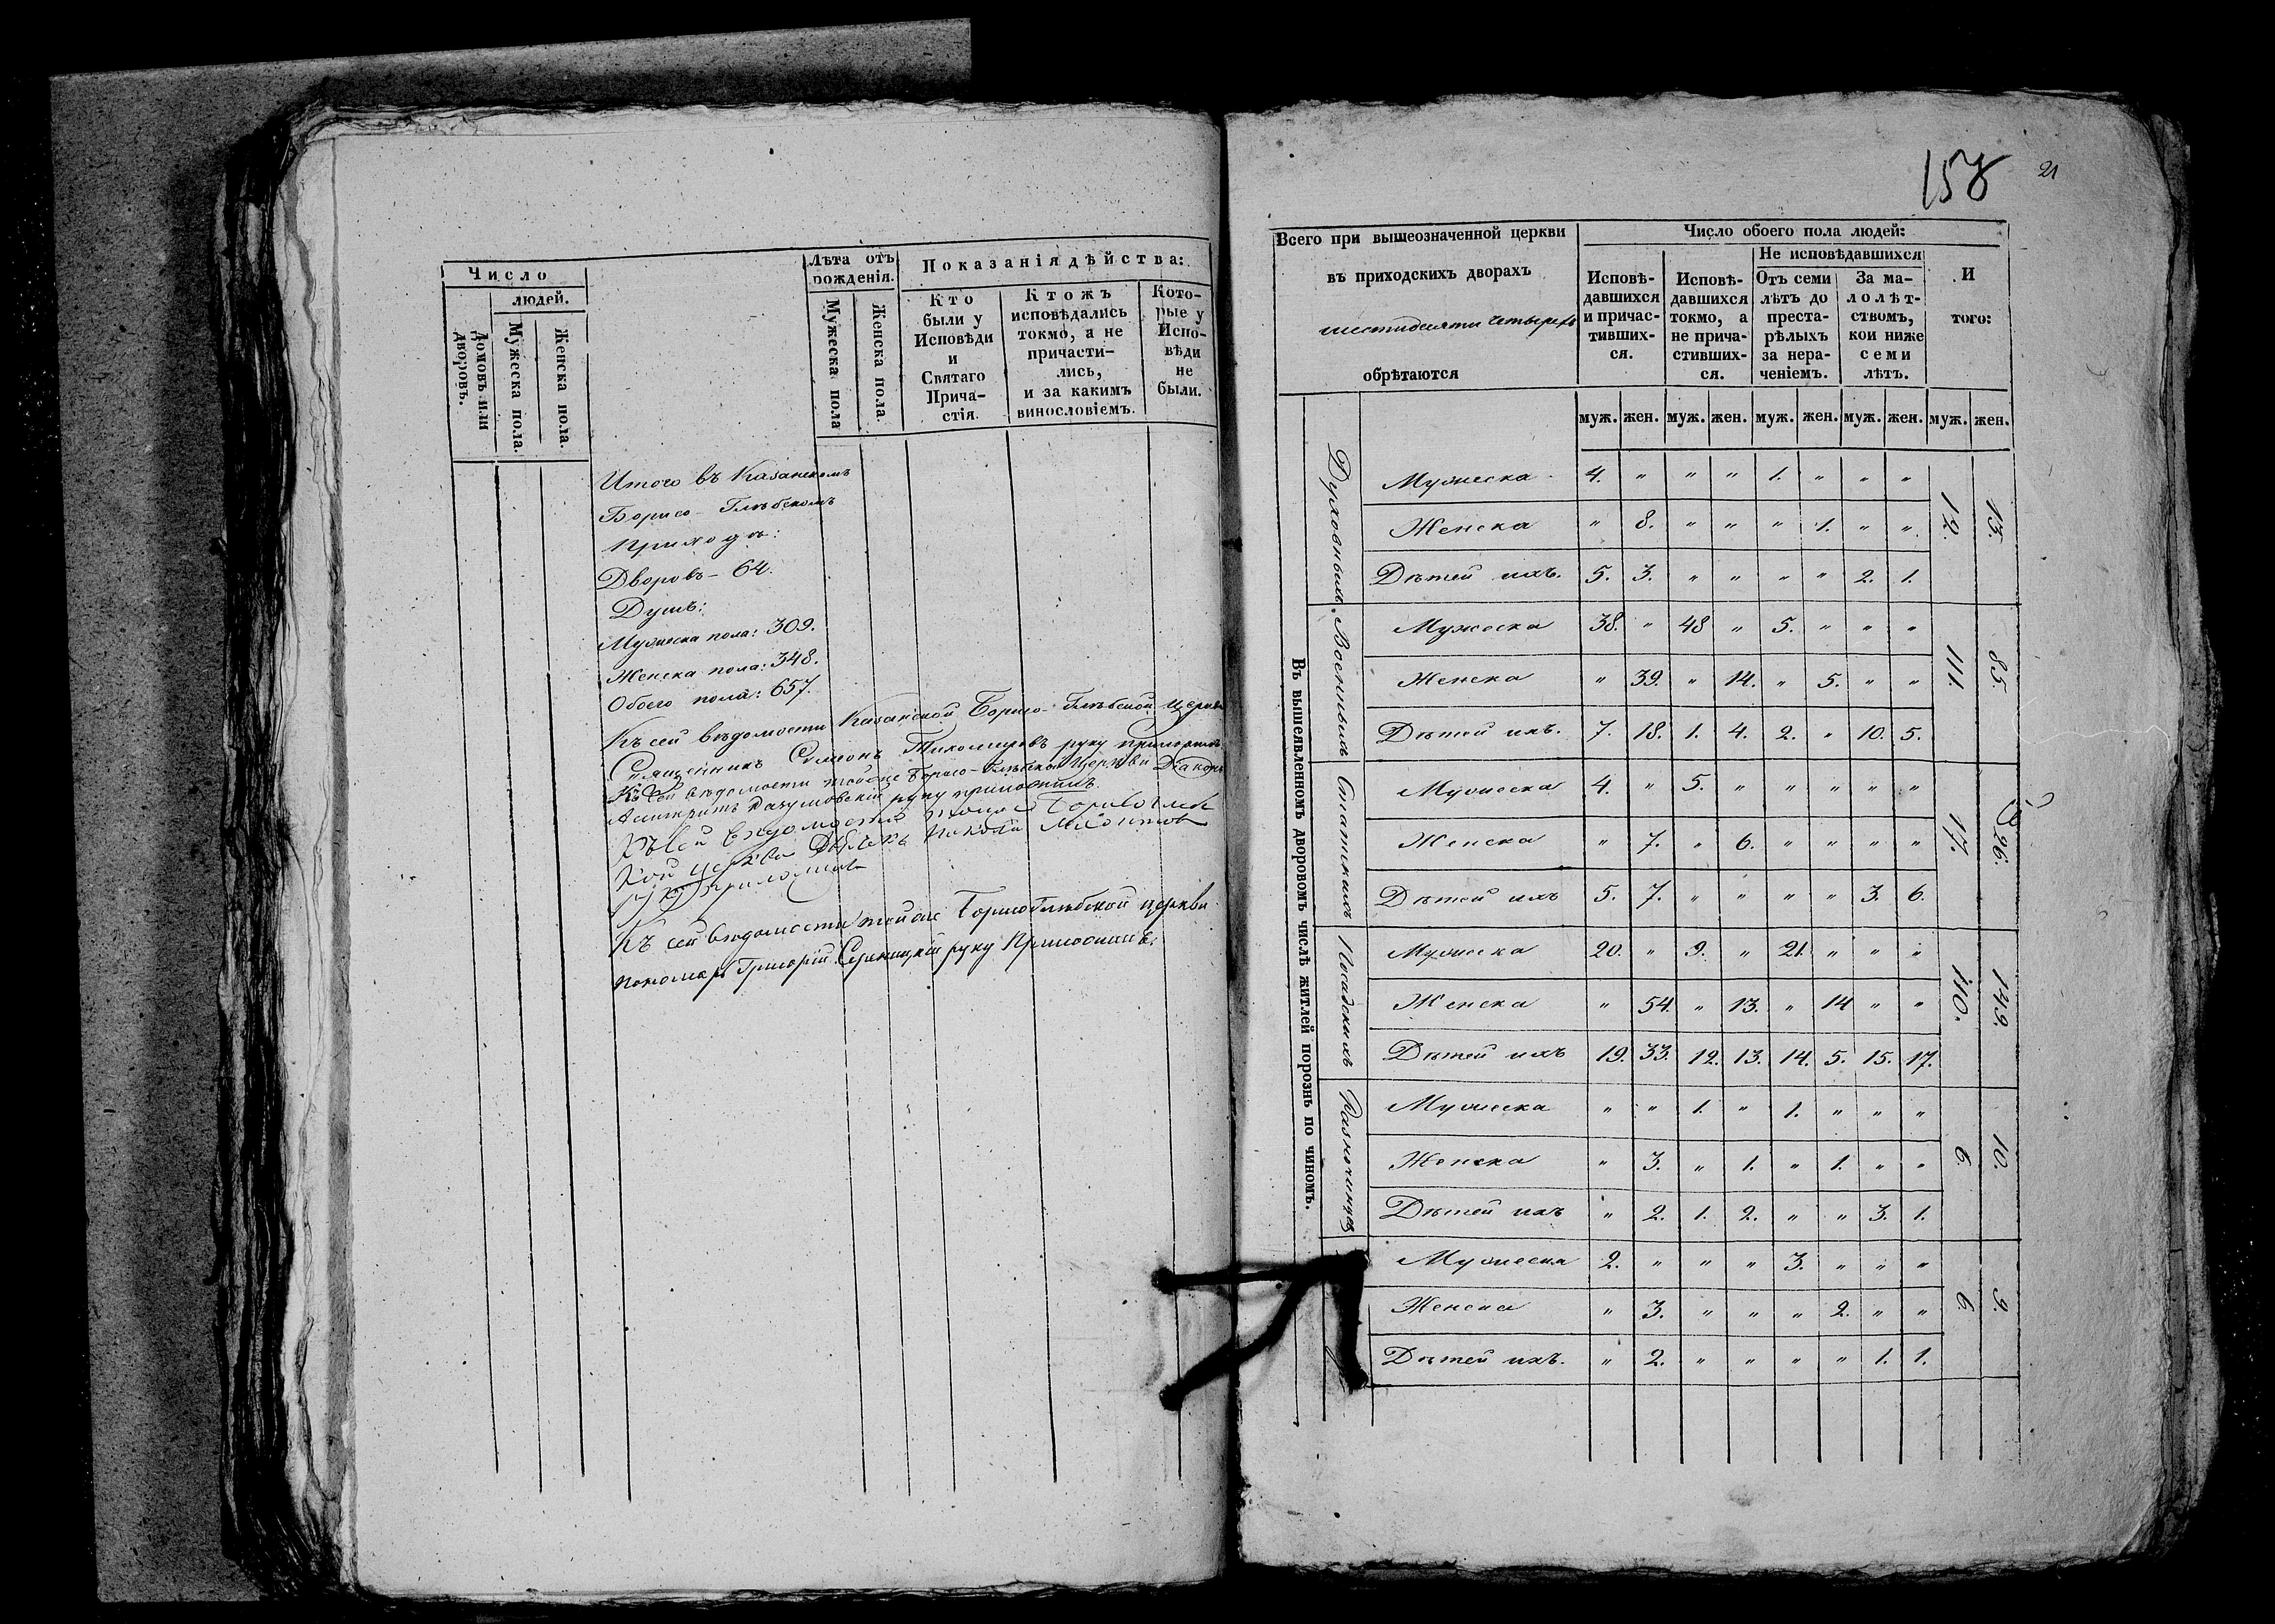 Число
людей.
Домовъ или дворовъ.
Мужеска пола.
Женска пола.
Лѣта отъ рожденія.
Мужеска пола
Женска пола.
Показанія дѣйства:
Кто были у Исповѣди и Святаго Прича-стія.
Ктожъ исповѣдались токмо, а не причасти-лись, и за какимъ винословіемъ.
Кото-рые у Испо-вѣди не были.
Итого въ Казанскомъ
Борисо-Глѣбскомъ
приходѣ:
Дворовъ – 64.
Душъ:
Мужеска пола: 309.
Женска пола: 348.
Обоего пола: 657.
Къ сей вѣдомости Казанской Борисо-Глѣбской церкви
Священникъ Симеонъ Тихомировъ руку приложилъ.
Къ сей вѣдомости тойже Борисо-Глѣбской Церкви Діаконъ
руку приложилъ.
Къ сей вѣдомости тойже
церкви
руку приложилъ
Къ сей вѣдомости тойже Борисоглѣбской церкви
пономарь Григорій руку приложилъ.
158
21
Всего при вышеозначенной церкви
въ приходскихъ дворахъ
шестидесяти четырехъ
обрѣтаются
Число обоего пола людей:
Исповѣ-давшихся и причас-тивших-ся.
Исповѣ-давшихся токмо, а не прича-стивших-ся.
Не исповѣдавшихся
Отъ семи лѣтъ до преста-рѣлыхъ за нера-ченіемъ.
За ма-лолѣт-ствомъ, кои ниже семи лѣтъ.
И того:
муж. жен. муж. жен. муж. жен. муж. жен. муж. жен.
Въ вышеявленномъ дворовомъ числѣ житлей порознь по чиномъ.
Духовныхъ
Мужеска 4. " " " 1. " " "
Женска " 8. " " " 1. " "
Дѣтей ихъ. 5. 3. " " " " 2. 1.
12. 13.
Военныхъ
Мужеска 38. " 48 " 5. " " "
Женска " 39. " 14. " 5. " "
Дѣтей ихъ. 7. 18. 1. 4. 2. " 10. 5.
111. 85.
Статскихъ
Мужеска 4. " 5. " " " " "
Женска " 7. " 6. " " " "
Дѣтей ихъ 5. 7. " " " " 3. 6.
17. 26.
Посадскихъ
Мужеска 20. " 9. " 21. " " "
Женска " 54. " 13. " 14 " "
Дѣтей ихъ 19. 33. 12. 13. 14. 5. 15. 17.
110. 149.
Разночинцевъ
Мужеска " " 1. " 1. " " "
Женска " 3. " 1. " 1. " "
Дѣтей ихъ " 2. 1. 2. " " 3. 1.
6. 10.
Мужеска 2. " " " 3. " " "
Женска " 3. " " " 2. " "
Дѣтей ихъ. " 2. " " " " 1. 1.
6. 9.